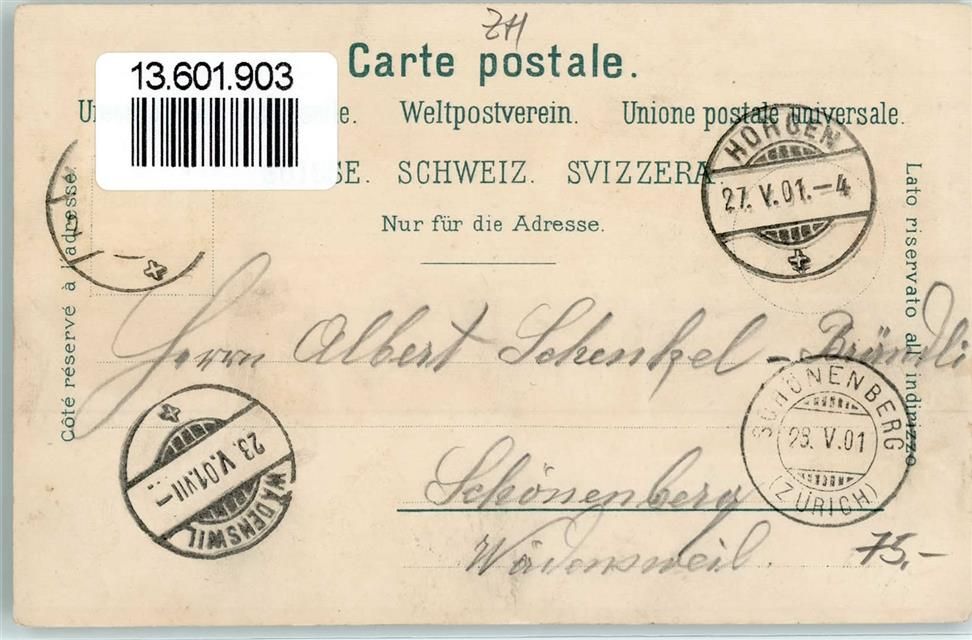 ZH
13.601.903
Carte postale.
Weltpostverein. Unione postale universale.
SCHWEIZ. SVIZZERA
Nur für die Adresse.
Côté réservé à l'adresse.
Lato riservato all indirizzo
HORGEN
27. V. 01. – 4
Herrn Albert Schenkel – Brändli
SCHÖNENBERG
28. V. 01
(ZÜRICH)
23. V. 01. VII –
WÄDENSWIL
Schönenberg
Wädensweil.
75.-